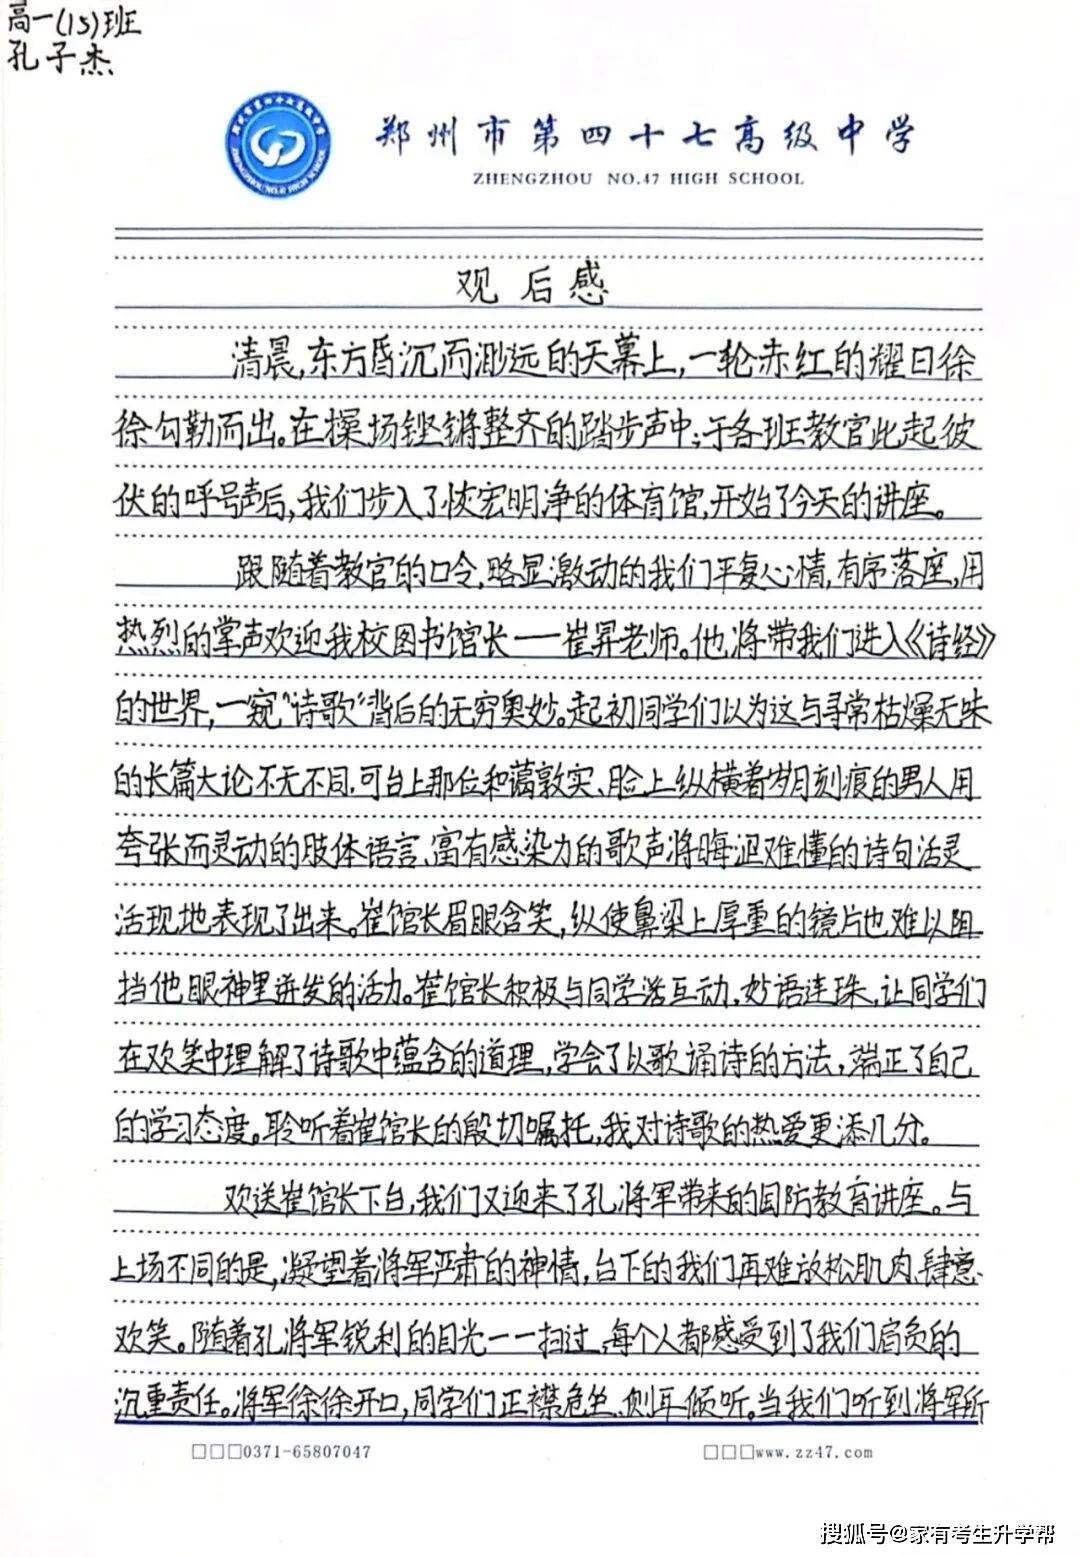 高一(15)班
孔子杰
郑州市第四十七高级中学
ZHENGZHOU NO.47 HIGH SCHOOL
ZHENGZHOU NO.47 HIGH SCHOOL
观后感
清晨,东方昏沉而渺远的天幕上,一轮赤红的耀日徐
徐勾勒而出。在操场铿锵整齐的踏步声中;于各班教官此起彼
伏的呼号声后,我们步入了恢宏明净的体育馆,开始了今天的讲座。
跟随着教官的口令,略显激动的我们平复心情,有序落座,用
热烈的掌声欢迎我校图书馆长——崔昇老师。他,将带我们进入《诗经》
的世界,一窥“诗歌”背后的无穷奥妙。起初同学们以为这与寻常枯燥无味
的长篇大论不无不同,可台上那位和蔼敦实、脸上纵横着岁月刻痕的男人用
夸张而灵动的肢体语言、富有感染力的歌声将晦涩难懂的诗句活灵
活现地表现了出来。崔馆长眉眼含笑,纵使鼻梁上厚重的镜片也难以阻
挡他眼神里迸发的活力。崔馆长积极与同学活互动,妙语连珠,让同学们
在欢笑中理解了诗歌中蕴含的道理,学会了以歌诵诗的方法,端正了自己
的学习态度。聆听着崔馆长的殷切嘱托,我对诗歌的热爱更添几分。
欢送崔馆长下台,我们又迎来了孔将军带来的国防教育讲座。与
上场不同的是,凝望着将军严肃的神情,台下的我们再难放松肌肉、肆意
欢笑。随着孔将军锐利的目光一一扫过,每个人都感受到了我们肩负的
沉重责任。将军徐徐开口,同学们正襟危坐、侧耳倾听。当我们听到将军所
□□□0371-65807047
□□□www.zz47.com
搜狐号@家有考生升学帮